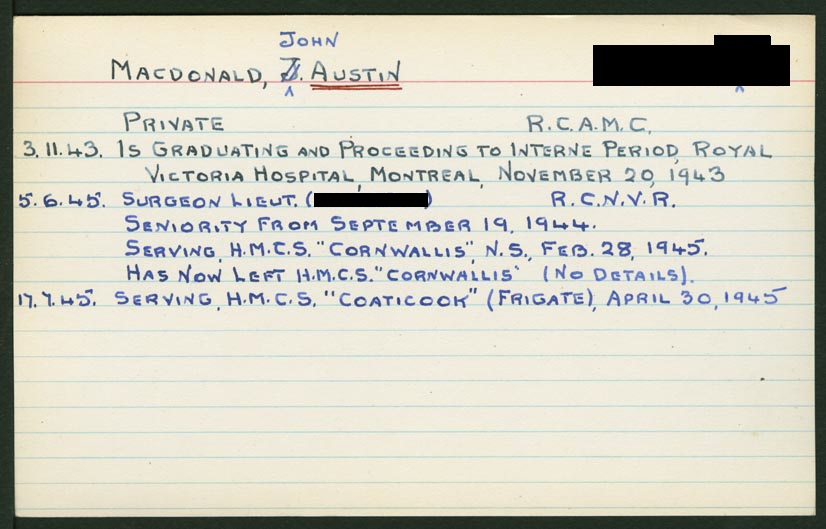 JOHN
MACDONALD, J. AUSTIN
PRIVATE R.C.A.M.C.
3.11.43. IS GRADUATING AND PROCEEDING TO INTERNE PERIOD, ROYAL
VICTORIA HOSPITAL, MONTREAL, NOVEMBER 20, 1943
5.6.45. SURGEON LIEUT. ( ) R.C.N.V.R.
SENIORITY FROM SEPTEMBER 19, 1944.
SERVING, H.M.C.S. "CORNWALLIS", N.S., FEB. 28, 1945.
HAS NOW LEFT H.M.C.S. "CORNWALLIS" (NO DETAILS).
17.7.45. SERVING, H.M.C.S. "COATICOOK" (FRIGATE), APRIL 30, 1945